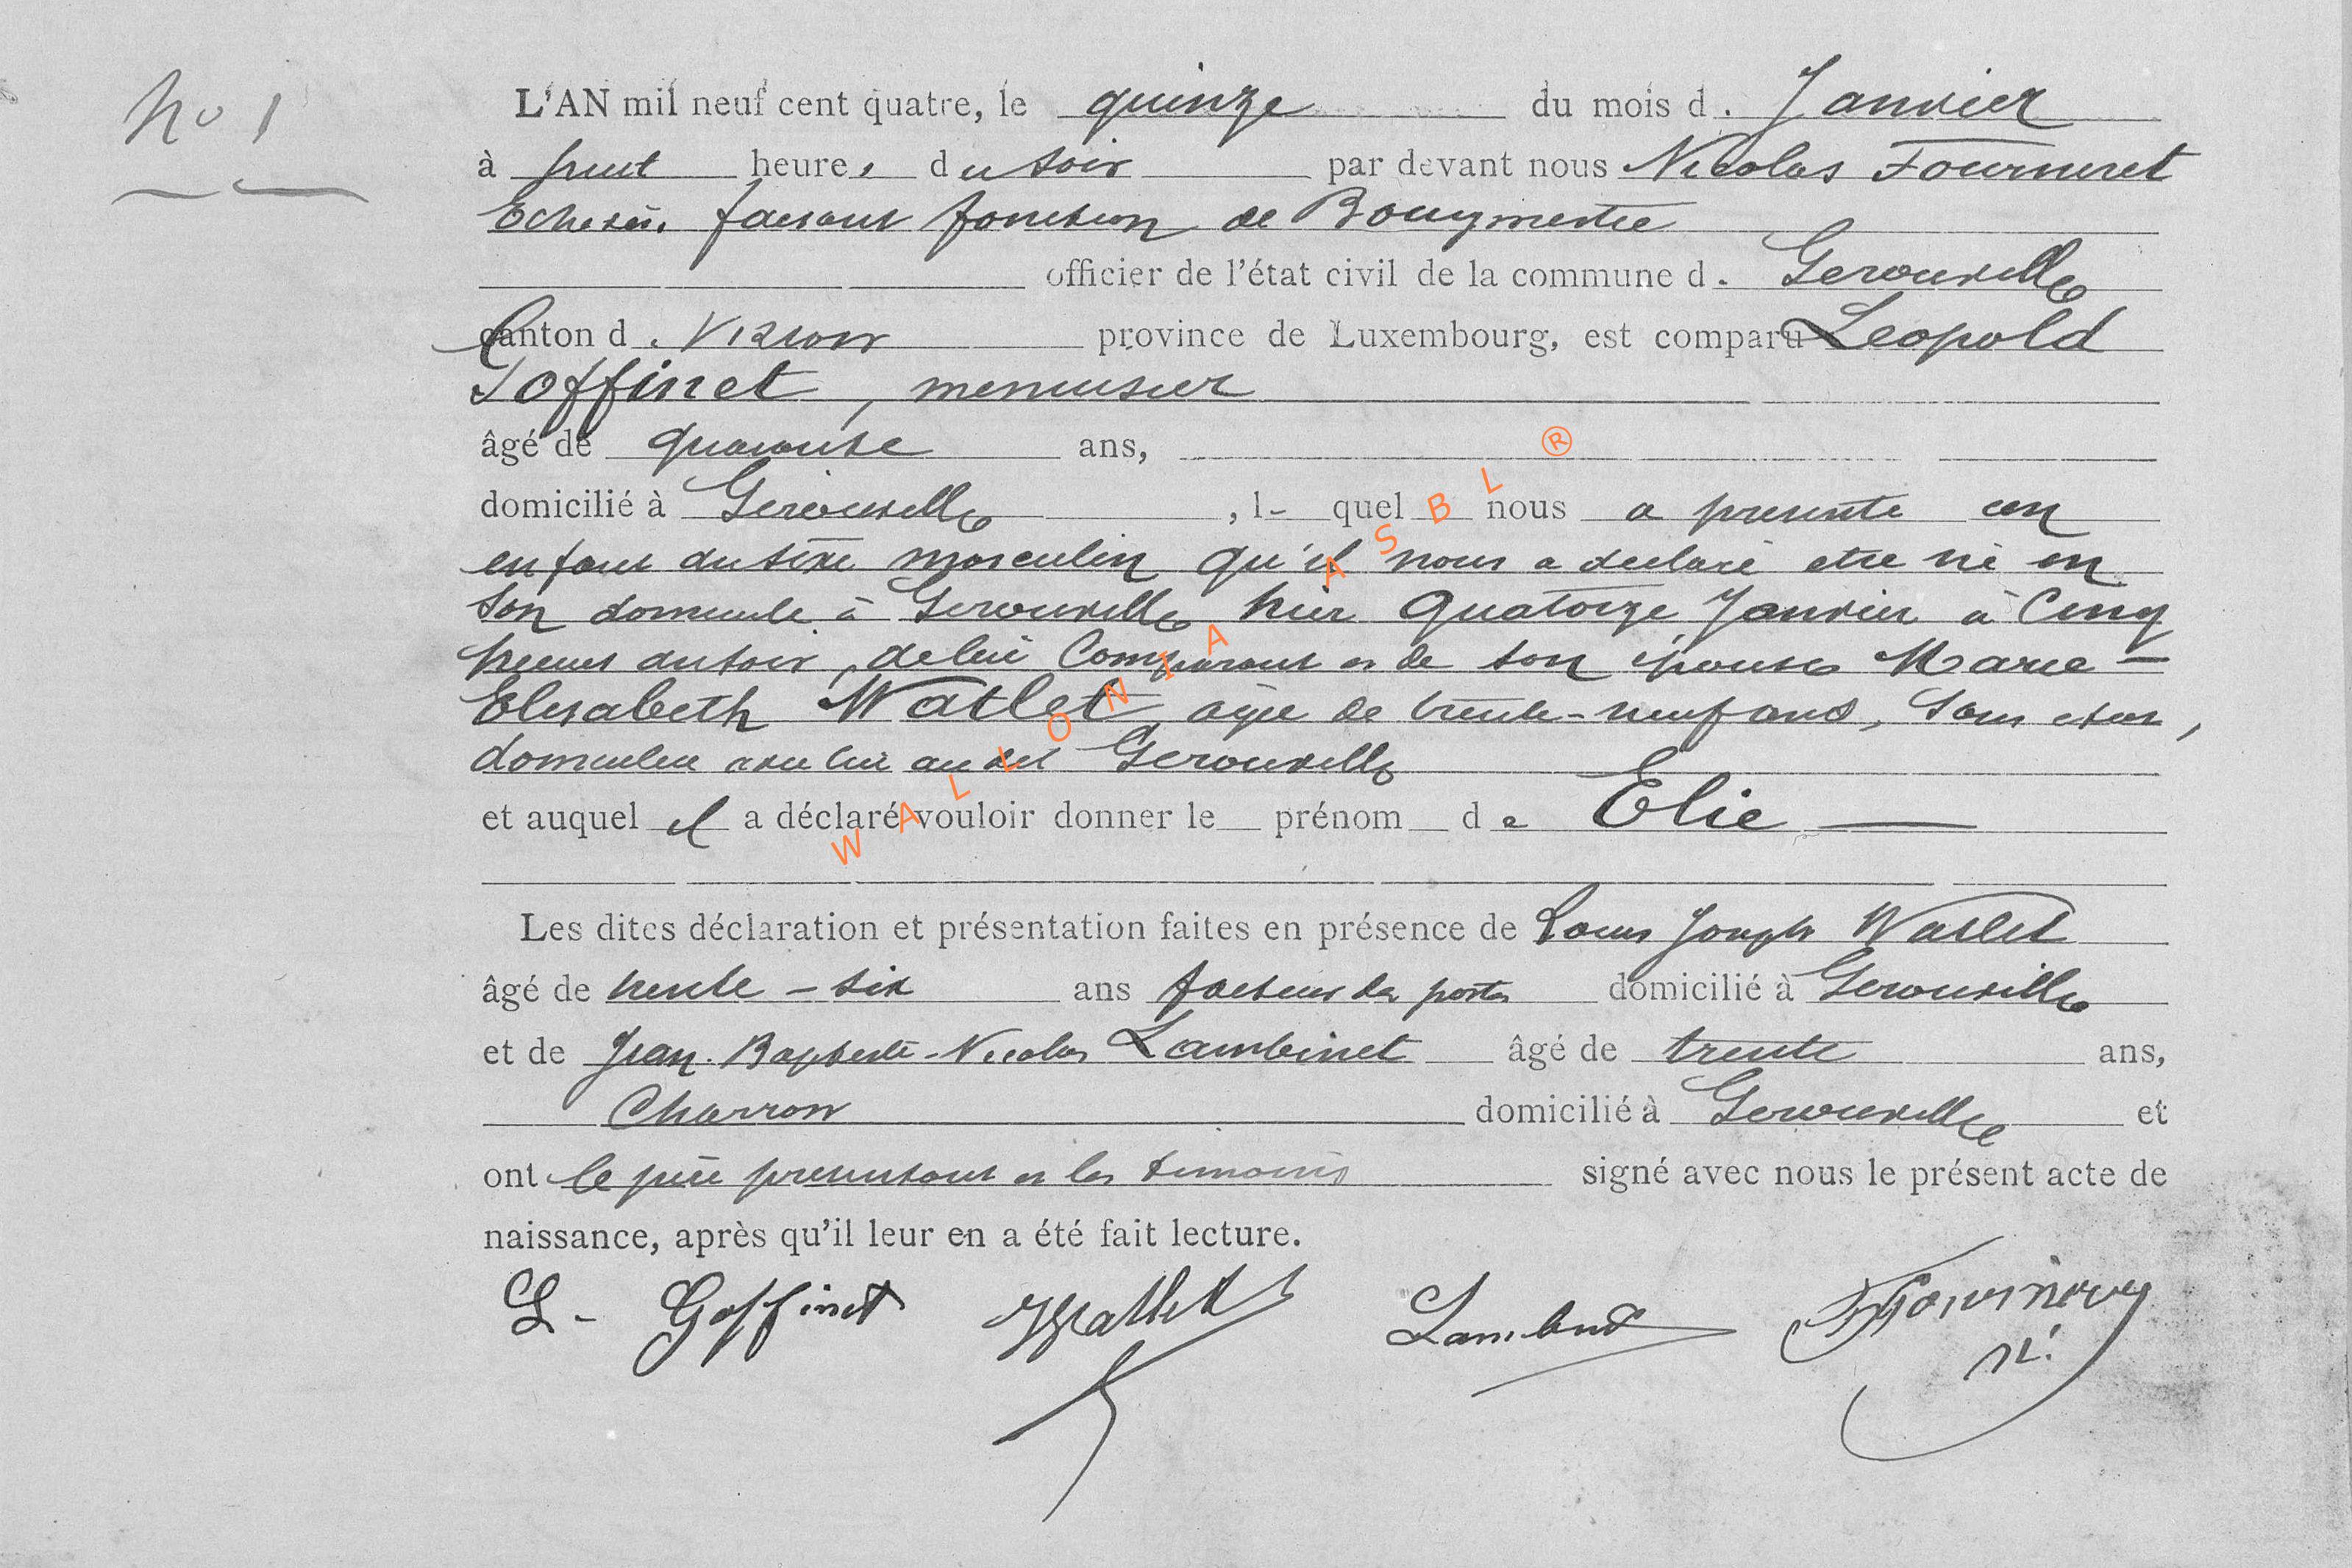 No 1
L'AN mil neuf cent quatre, le quinze du mois d. Janvier
à huit heures du soir par devant nous Nicolas Fourneret
Echevin faisant fonction de Bourgmestre
officier de l'état civil de la commune d. Gerouville
canton d. Virton province de Luxembourg, est comparu Leopold
Goffinet, menuisier
âgé de quarante ans,
domicilié à Gerouville, l- quel nous a presenté un
enfant du sexe masculin qu'il nous a déclaré etre né en
son domicile à Gerouville hier quatorze Janvier à Cinq
heures du soir, de lui Comparant et de son épouse Marie -
Elisabeth Watlet, agée de trente-neuf ans, Sans etat,
domiciliée avec lui au dit Gerouville
et auquel il a déclaré vouloir donner le prénom de Elie
Les dites déclaration et présentation faites en présence de Louis Joseph Watlet
âgé de trente - six ans facteur des postes domicilié à Gerouville
et de Jean-Baptiste-Nicolas Lambinet âgé de trente ans,
Charron domicilié à Gerouville et
ont le père présentant et les témoins signé avec nous le présent acte de
naissance, après qu'il leur en a été fait lecture.
L - Goffinet Watlet Lambinet
WALLONIA ASBL ®